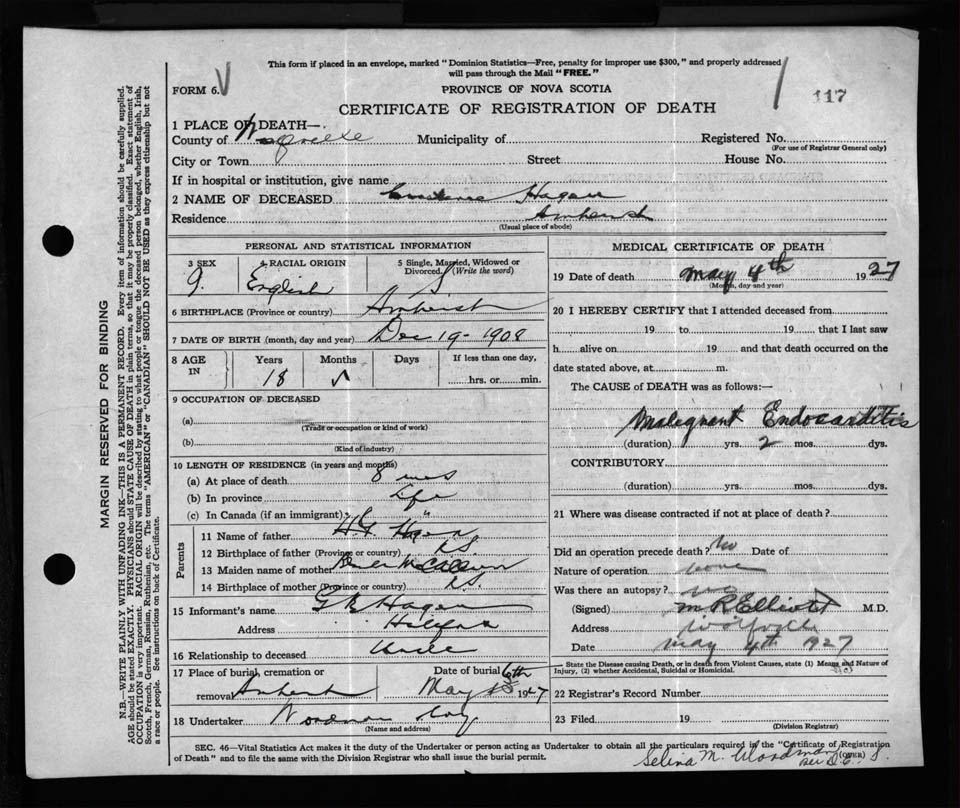 This form if placed in an envelope, marked "Dominion Statistics—Free, penalty for improper use $300," and properly addressed
will pass through the Mail "FREE."
FORM 6.
PROVINCE OF NOVA SCOTIA
117
CERTIFICATE OF REGISTRATION OF DEATH
1 PLACE OF DEATH—
County of Municipality of Registered No.
(For use of Registrar General only)
City or Town Street House No.
If in hospital or institution, give name
2 NAME OF DECEASED Hagen
Residence Amherst
(Usual place of abode)
PERSONAL AND STATISTICAL INFORMATION
3 SEX 4 RACIAL ORIGIN 5 Single, Married, Widowed or Divorced. (Write the word)
English S
6 BIRTHPLACE (Province or country) Amherst
7 DATE OF BIRTH (month, day and year) Dec 19 - 1908
8 AGE IN Years Months Days If less than one day,
18 hrs. or min.
9 OCCUPATION OF DECEASED
(a)
(Trade or occupation or kind of work)
(b)
(Kind of industry)
10 LENGTH OF RESIDENCE (in years and months)
(a) At place of death 8 mos
(b) In province Life
(c) In Canada (if an immigrant) "
Parents
11 Name of father Hagen
12 Birthplace of father (Province or country) N.S.
13 Maiden name of mother
14 Birthplace of mother (Province or country) N.S.
15 Informant's name Hagen
Address Halifax
16 Relationship to deceased Uncle
17 Place of burial, cremation or removal Amherst
Date of burial May 6th 1927
18 Undertaker Woodman Coy
(Name and address)
MEDICAL CERTIFICATE OF DEATH
19 Date of death May 4th 1927
(Month, day and year)
20 I HEREBY CERTIFY that I attended deceased from
19 to 19 that I last saw
h alive on 19 and that death occurred on the
date stated above, at m.
The CAUSE of DEATH was as follows:—
Malignant Endocarditis
(duration) yrs. 2 mos. dys.
CONTRIBUTORY
(duration) yrs. mos. dys.
21 Where was disease contracted if not at place of death?
Did an operation precede death? No Date of
Nature of operation none
Was there an autopsy? no
(Signed) M R Elliott M.D.
Address Wolfville
Date May 4th 1927
State the Disease causing Death, or in death from Violent Causes, state (1) Means and Nature of
Injury, (2) whether Accidental, Suicidal or Homicidal.
22 Registrar's Record Number
23 Filed 19
(Division Registrar)
SEC. 46—Vital Statistics Act makes it the duty of the Undertaker or person acting as Undertaker to obtain all the particulars required in the "Certificate of Registration
of Death" and to file the same with the Division Registrar who shall issue the burial permit.
(OVER)
Selina M. Woodman
MARGIN RESERVED FOR BINDING
N.B.—WRITE PLAINLY WITH UNFADING INK—THIS IS A PERMANENT RECORD. Every item of information should be carefully supplied.
AGE should be stated EXACTLY. PHYSICIANS should STATE CAUSE OF DEATH in plain terms, so that it may be properly classified. Exact statement of
OCCUPATION is very important. RACIAL ORIGIN will be described by stating to what people or tongue the deceased person belonged, whether English, Irish,
Scotch, French, German, Russian, Ruthenian, etc. The terms "AMERICAN" or "CANADIAN" SHOULD NOT BE USED as they express citizenship but not
a race or people. See instructions on back of Certificate.